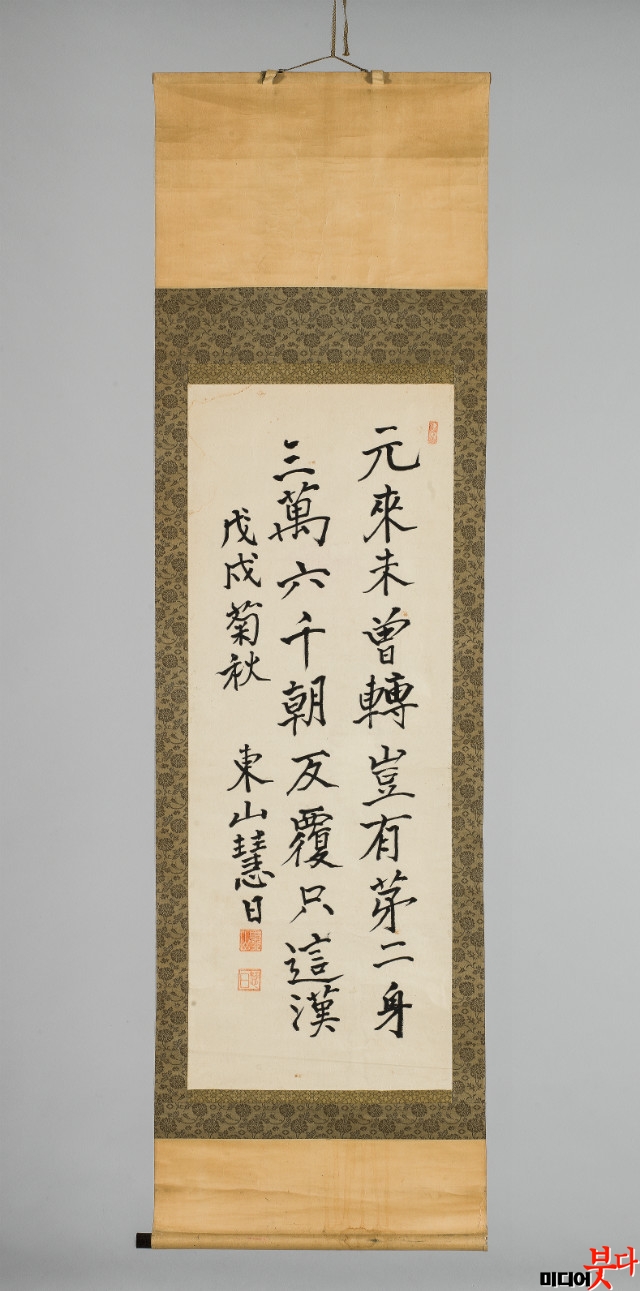 元來未曾轉豈有苐二身
三萬六千朝反覆只這漢
戊戌菊秋 東山慧日
미디어붓다